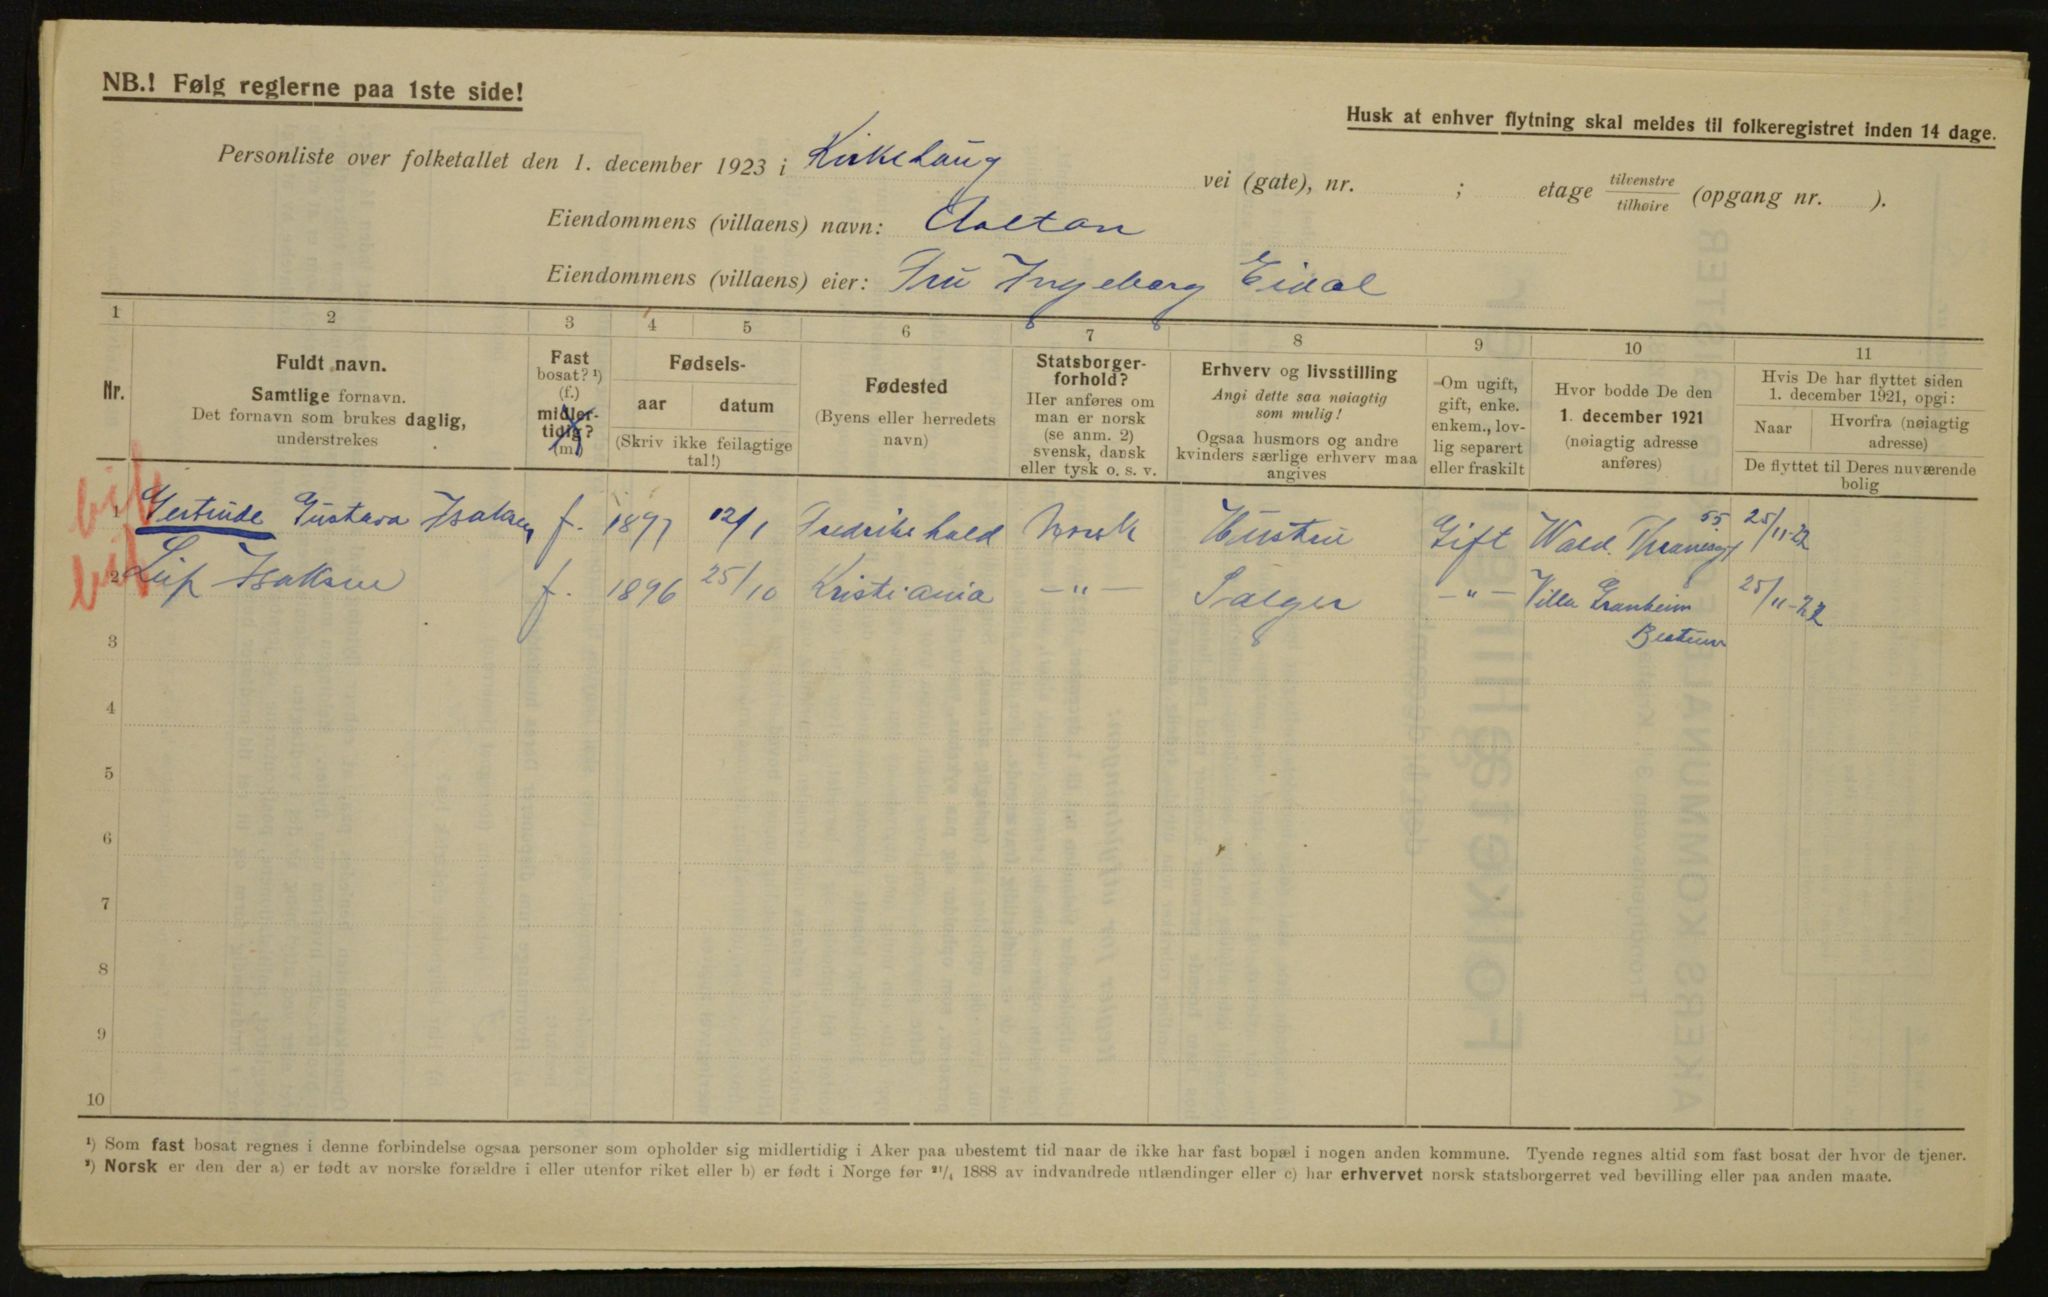 NB.! Følg reglerne paa 1ste side!
Husk at enhver flytning skal meldes til folkeregistret inden 14 dage.
Personliste over folketallet den 1. december 1923 i Kirkehaug vei (gate), nr. ; etage tilvenstre/tilhøire (opgang nr. ).
Eiendommens (villaens) navn:
Eiendommens (villaens) eier: Fru Ingeborg Eidal
1 2 3 4 5 6 7 8 9 10 11
Nr.
Fuldt navn.
Samtlige fornavn.
Det fornavn som brukes daglig,
understrekes
Fast
bosat? ¹)
(f.)
midler-
tidig?
(m)
Fødsels-
aar datum
(Skriv ikke feilagtige
tal!)
Fødested
(Byens eller herredets
navn)
Statsborger-
forhold?
Her anføres om
man er norsk
(se anm. 2)
svensk, dansk
eller tysk o. s. v.
Erhverv og livsstilling
Angi dette saa nøiagtig
som mulig!
Ogsaa husmors og andre
kvinders særlige erhverv maa
angives
Om ugift,
gift, enke.
enkem., lov-
lig separert
eller fraskilt
Hvor bodde De den
1. december 1921
(nøiagtig adresse
anføres)
Hvis De har flyttet siden
1. december 1921, opgi:
Naar
Hvorfra (nøiagtig
adresse)
De flyttet til Deres nuværende
bolig
1 Gertrude Gustava Isaksen f. 1897 Fredrikshald Norsk Hustru Gift Wald. Thranesgt 55. 25/11-22
2 Leif Isaksen f. 1896 25/10 Kristiania -"- Sælger -"- Villa Granheim 25/11-22
Bestum
3
4
5
6
7
8
9
10
¹) Som fast bosat regnes i denne forbindelse ogsaa personer som opholder sig midlertidig i Aker paa ubestemt tid naar de ikke har fast bopæl i nogen anden kommune. Tyende regnes altid som fast bosat der hvor de tjener.
²) Norsk er den der a) er født av norske forældre i eller utenfor riket eller b) er født i Norge før ²¹/₄ 1888 av indvandrede utlændinger eller c) har erhvervet norsk statsborgerret ved bevilling eller paa anden maate.